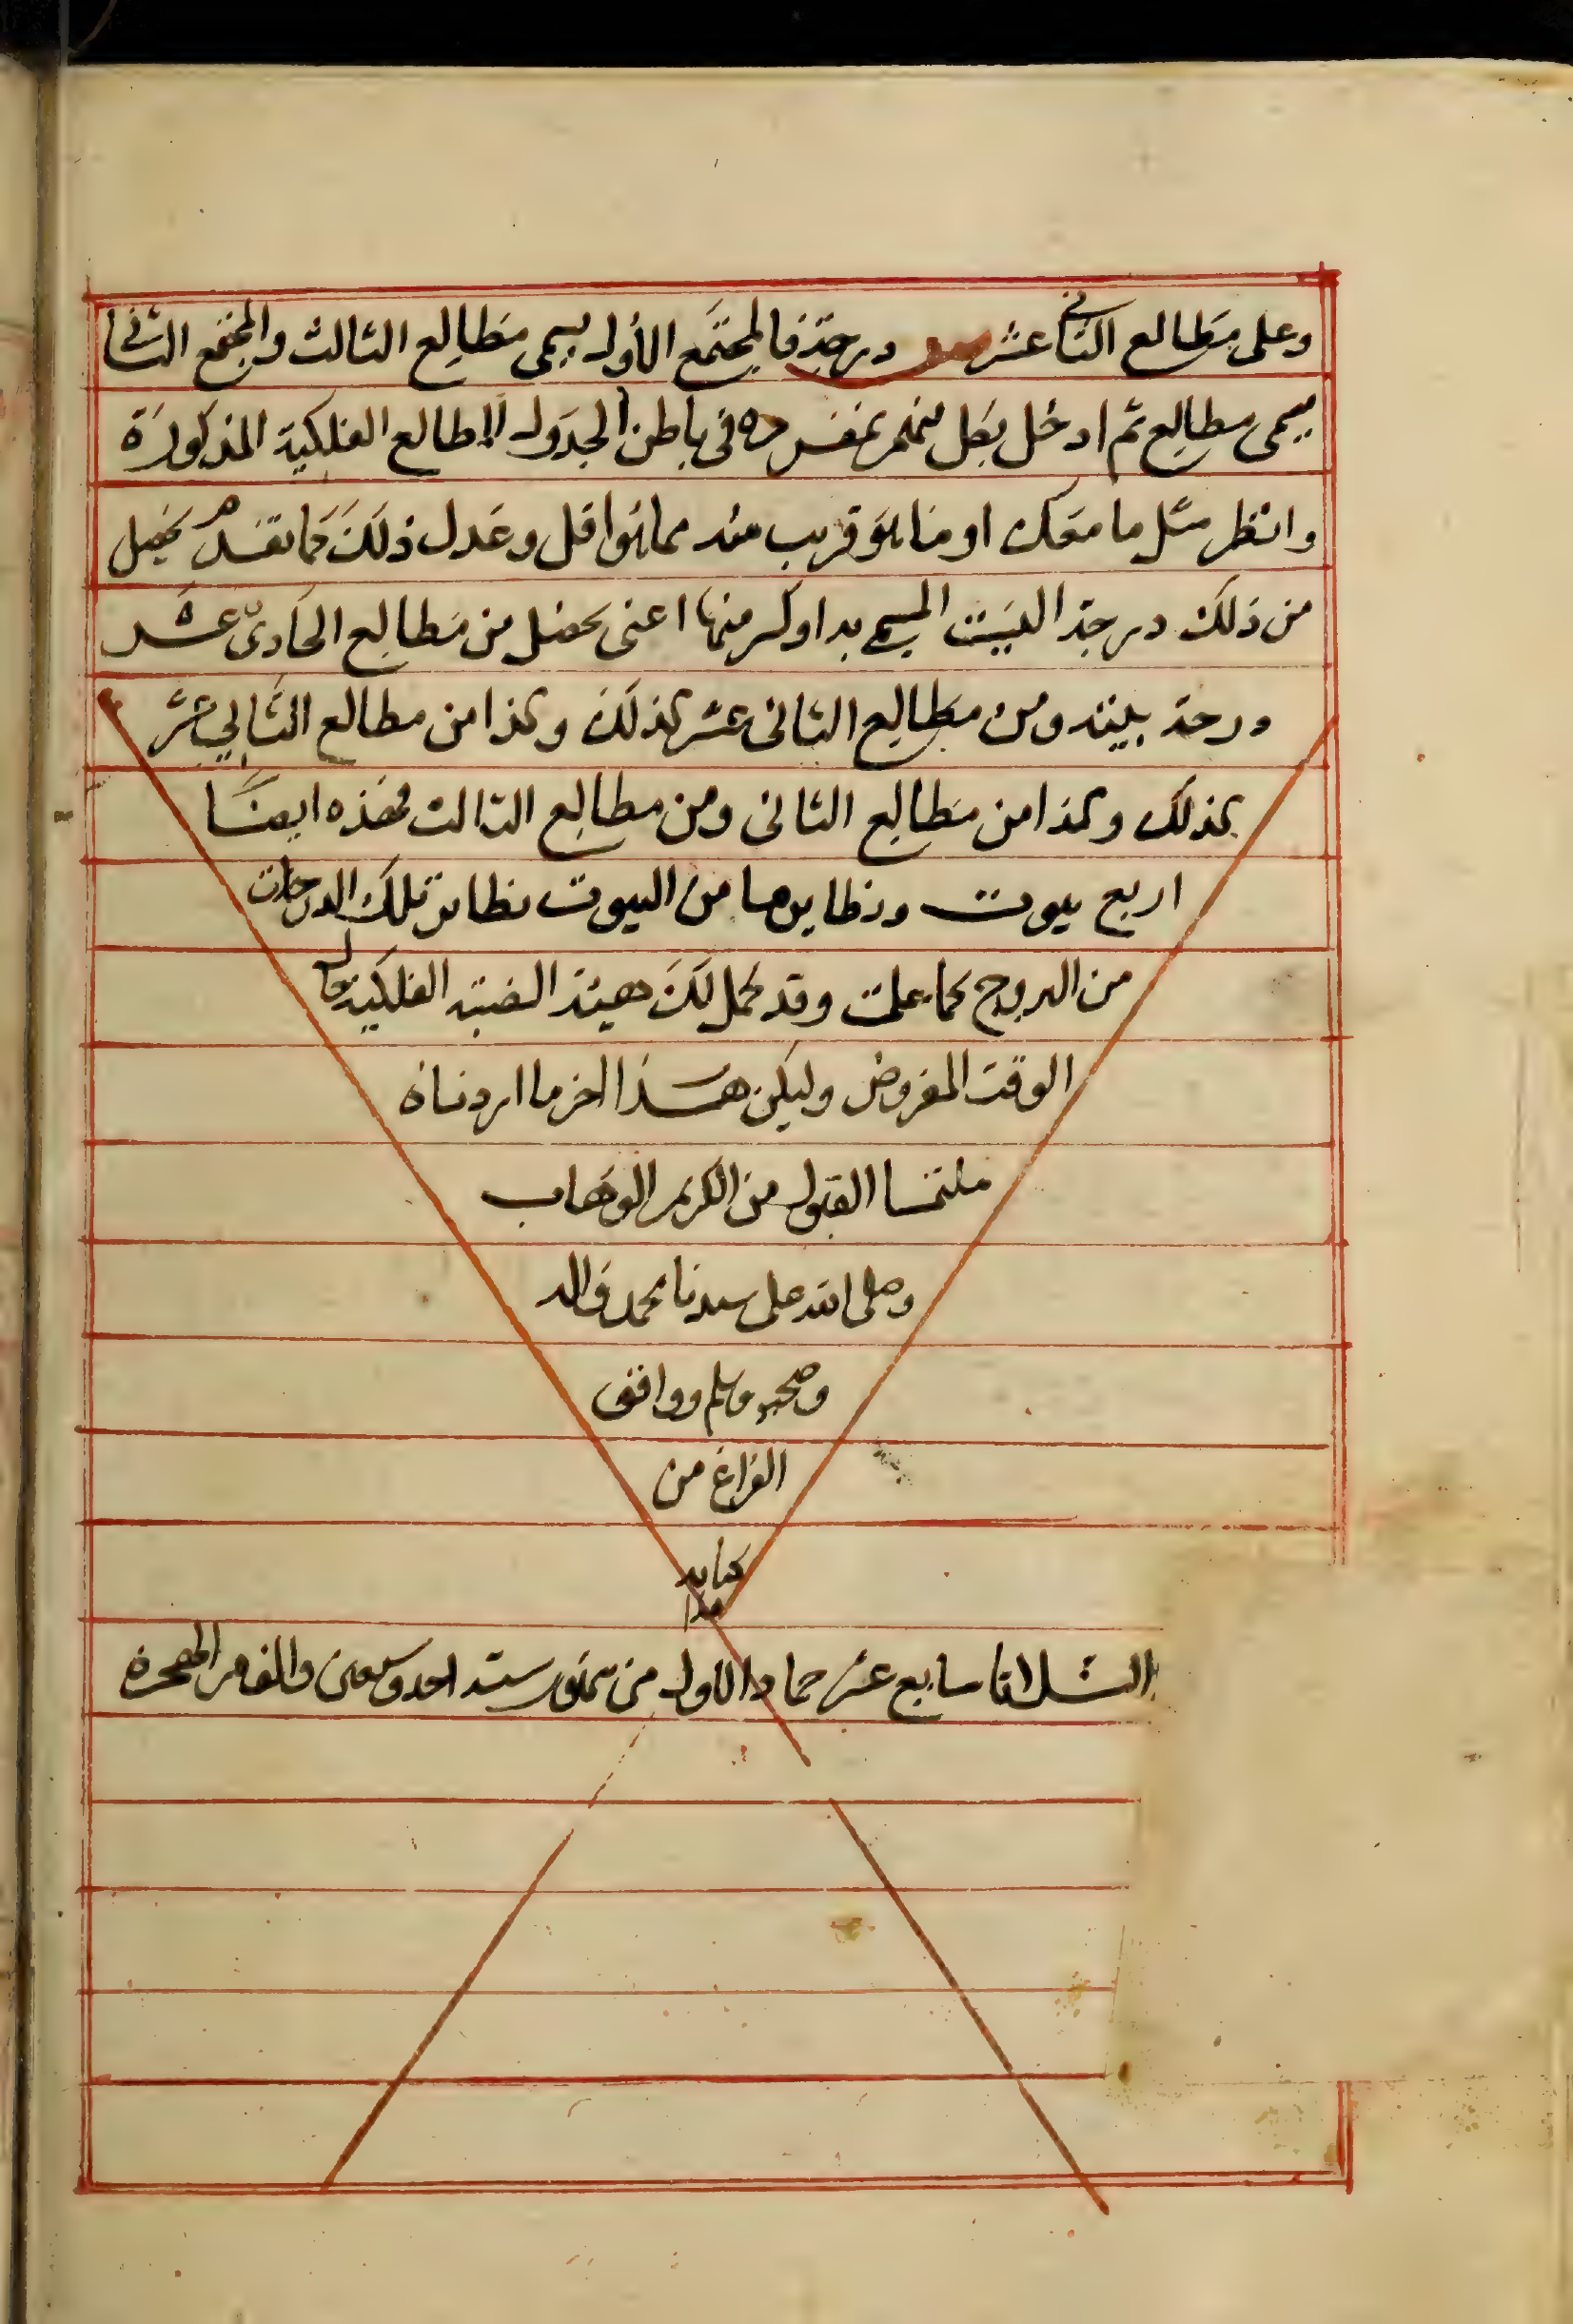 وعلى مطالع الثاني عشر درجة فالمجتمع الأول يسمى مطالع الثالث والمجتمع الثاني
يسمى مطالع ثم ادخل بكل منهم بمفرده في باطن الجدول المطالع الفلكية المذكورة
وانظر مثل ما معك او ما هو قريب منه مما هوا قل وعدل ذلك كما تقدم يحصل
من ذلك درجة البيت المسمى به او كسر منها اعنى يحصل من مطالع الحادى عشر
درجة بيته ومن مطالع الثانى عشر كذلك وكذا من مطالع الثاني عشر
كذلك وكذا من مطالع الثانى ومن مطالع الثالث فهذه ايضا
اربع بيوت ونظايرها من البيوت نظاير تلك الدرجات
من البروج كما علمت وقد كمل لك هيئة النصبة الفلكية
الوقت المفروض وليكن هذا اخر ما اردناه
ملتمسا القبول من الكريم الوهاب
وصلى الله على سيدنا محمد واله
وصحبه وسلم ووافق
الفراغ من
كتابه
هذا
الثلاثا سابع عشر جماد الاول من شهور سنة احد وسبعين والف من الهجرة